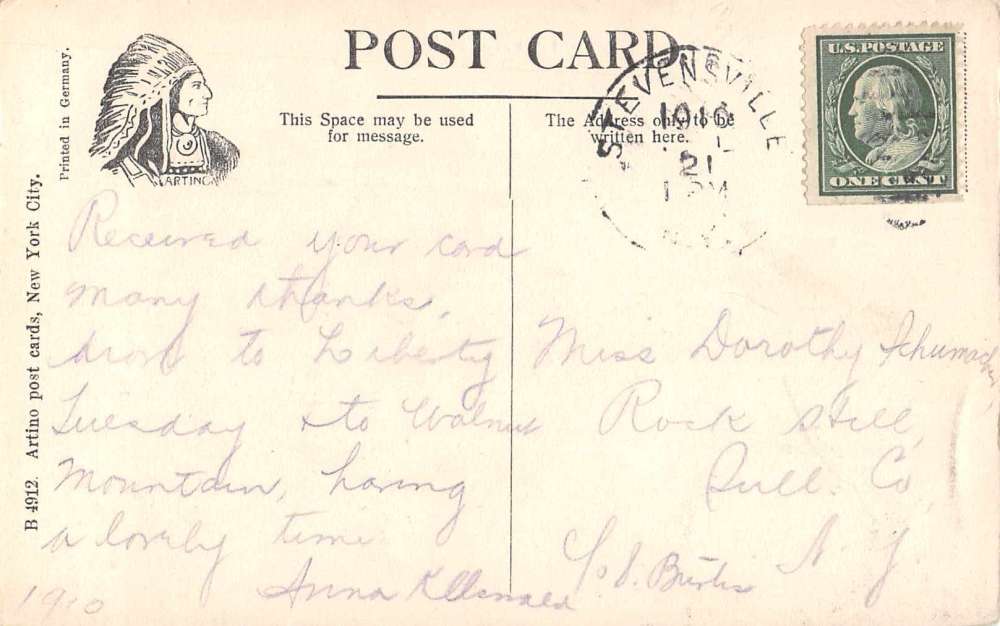 POST CARD
This Space may be used
for message.
The Address only to be
written here.
Printed in Germany.
B 4912. Artino post cards, New York City.
ARTINO
STEVENSVILLE
1910
21
1 PM
N.Y.
U.S. POSTAGE
ONE CENT
Received your card
many thanks,
drove to Liberty
Tuesday & to Walnut
Mountain, having
a lovely time
Anna
1910
Miss Dorothy Schumacher
Rock Hill,
Sull. Co
N. Y